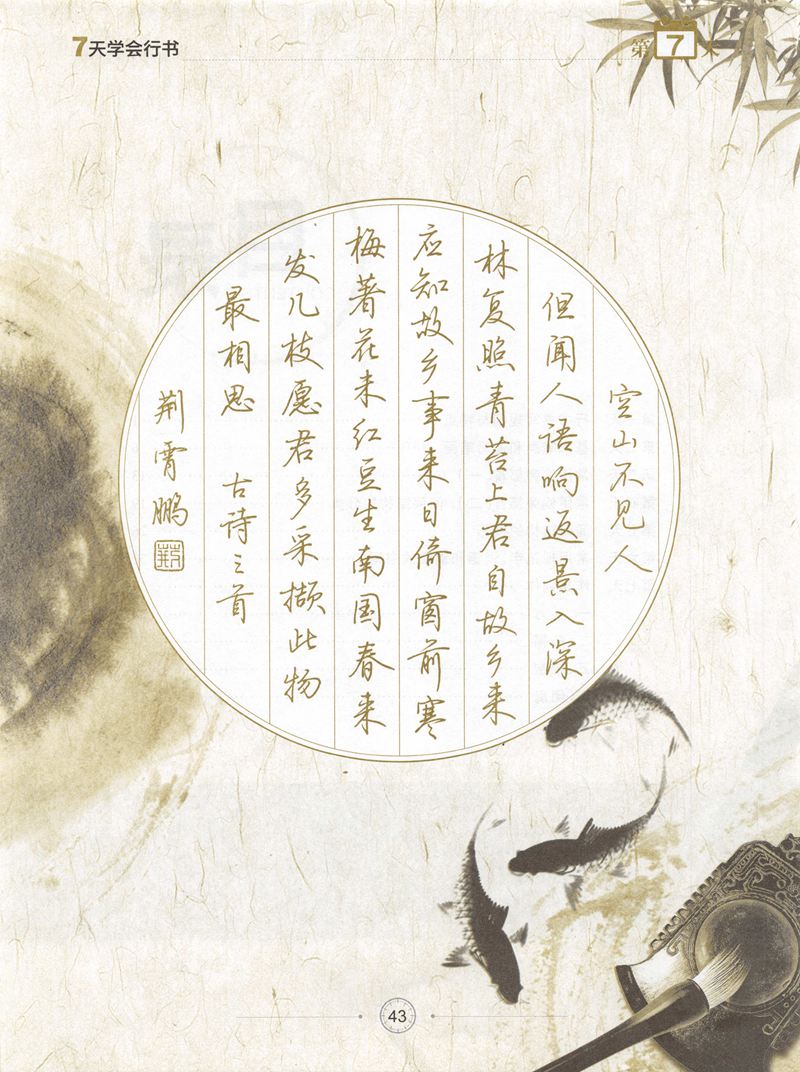 7天学会行书
第7天
空山不见人
但闻人语响返景入深
林复照青苔上君自故乡来
应知故乡事来日倚窗前寒
梅著花未红豆生南国春来
发几枝愿君多采撷此物
最相思 古诗三首
荆霄鹏
荆
43